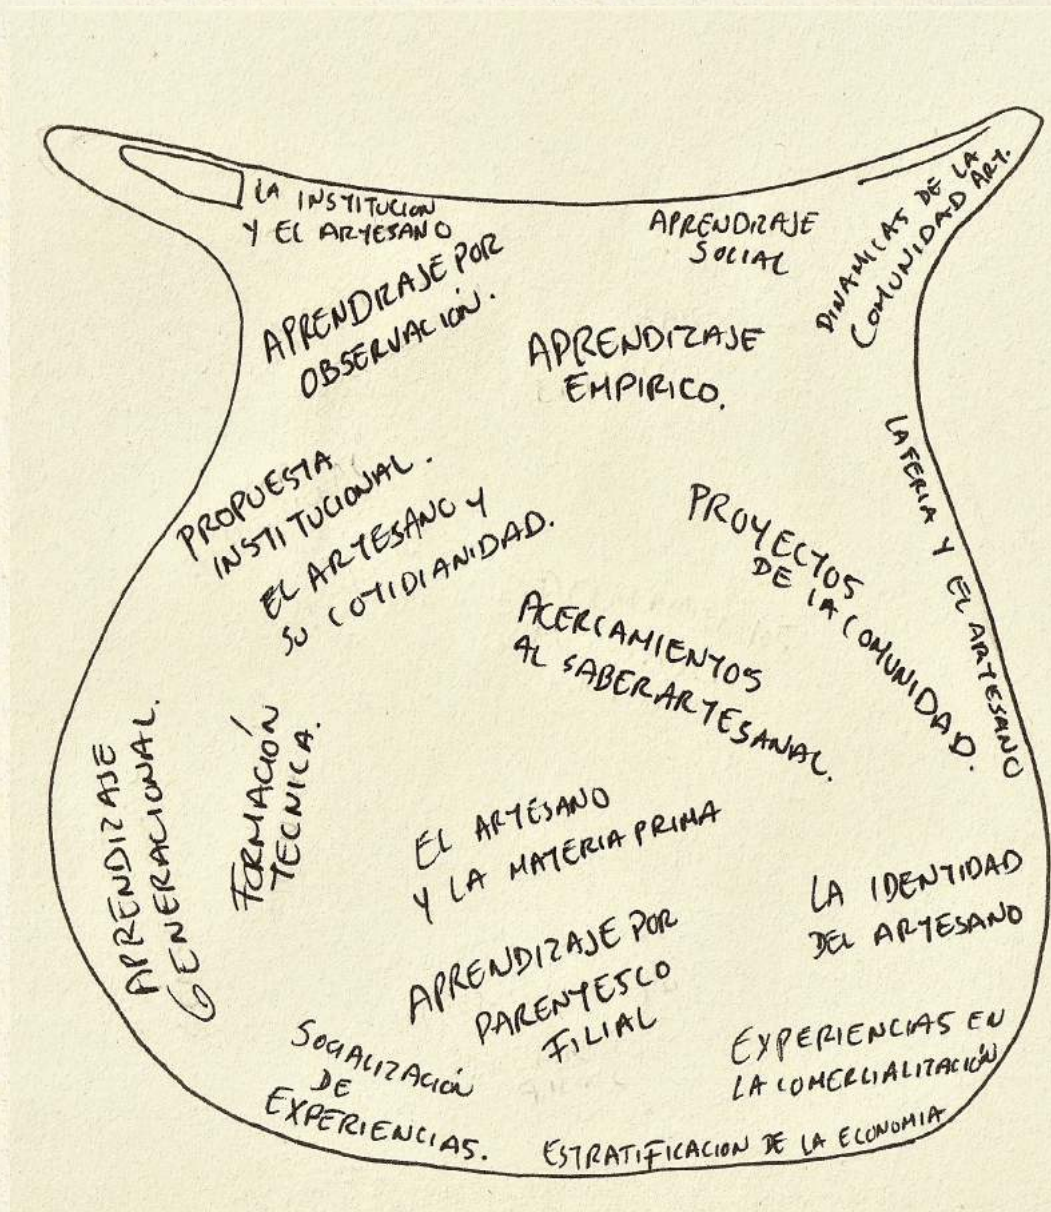 LA INSTITUCION
Y EL ARTESANO
APRENDIZAJE
SOCIAL
DINAMICAS DE LA
COMUNIDAD ART.
APRENDIZAJE POR
OBSERVACIÓN.
APRENDIZAJE
EMPIRICO.
LA FERIA Y EL ARTESANO
PROPUESTA
INSTITUCIONAL.
EL ARTESANO Y
SU COTIDIANIDAD.
PROYECTOS
DE LA COMUNIDAD.
ACERCAMIENTOS
AL SABER ARTESANAL.
APRENDIZAJE
GENERACIONAL.
FORMACIÓN
TECNICA.
EL ARTESANO
Y LA MATERIA PRIMA
LA IDENTIDAD
DEL ARTESANO
APRENDIZAJE POR
PARENTESCO
FILIAL
SOCIALIZACIÓN
DE
EXPERIENCIAS.
EXPERIENCIAS EN
LA COMERCIALIZACIÓN
ESTRATIFICACION DE LA ECONOMIA